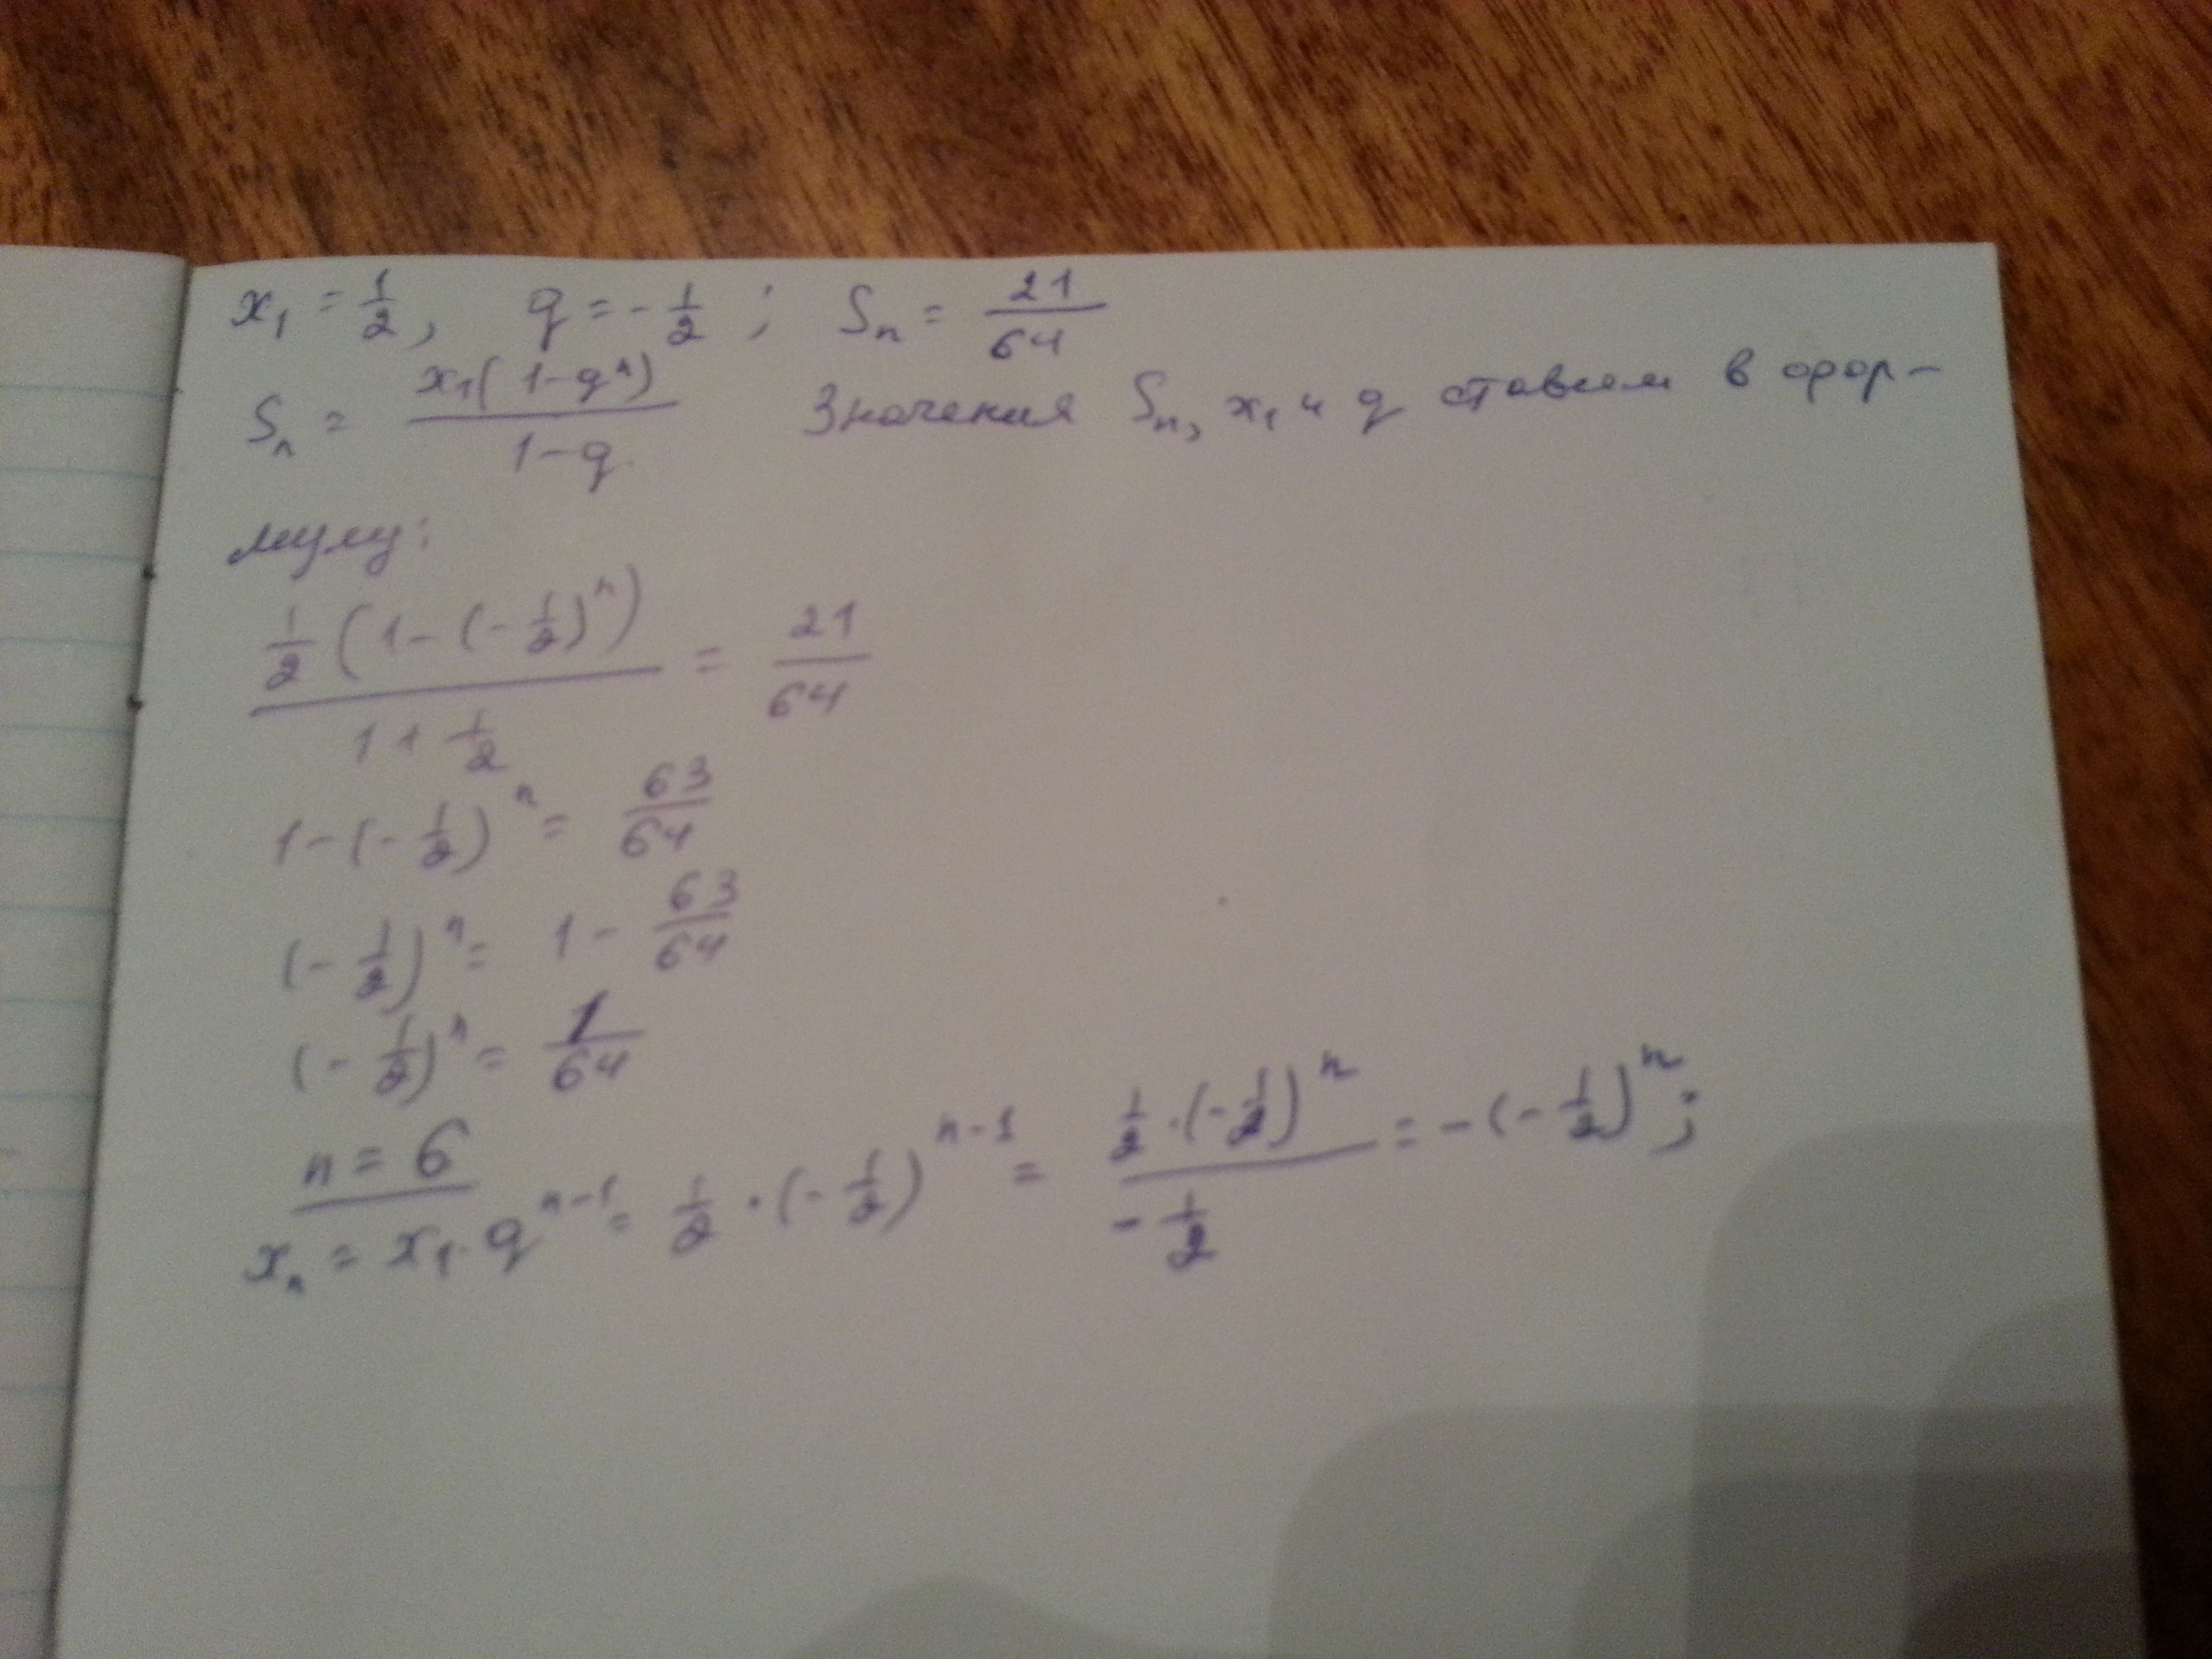 x₁ = 1/2, q = -1/2; Sₙ = 21/64
Sₙ = x₁(1-qⁿ)/(1-q) Значения Sₙ, x₁ и q ставим в фор-
мулу:
1/2(1-(-1/2)ⁿ)/(1+1/2) = 21/64
1-(-1/2)ⁿ = 63/64
(-1/2)ⁿ = 1 - 63/64
(-1/2)ⁿ = 1/64
n = 6
xₙ = x₁·qⁿ⁻¹ = 1/2·(-1/2)ⁿ⁻¹ = (1/2·(-1/2)ⁿ)/(-1/2) = -(-1/2)ⁿ;